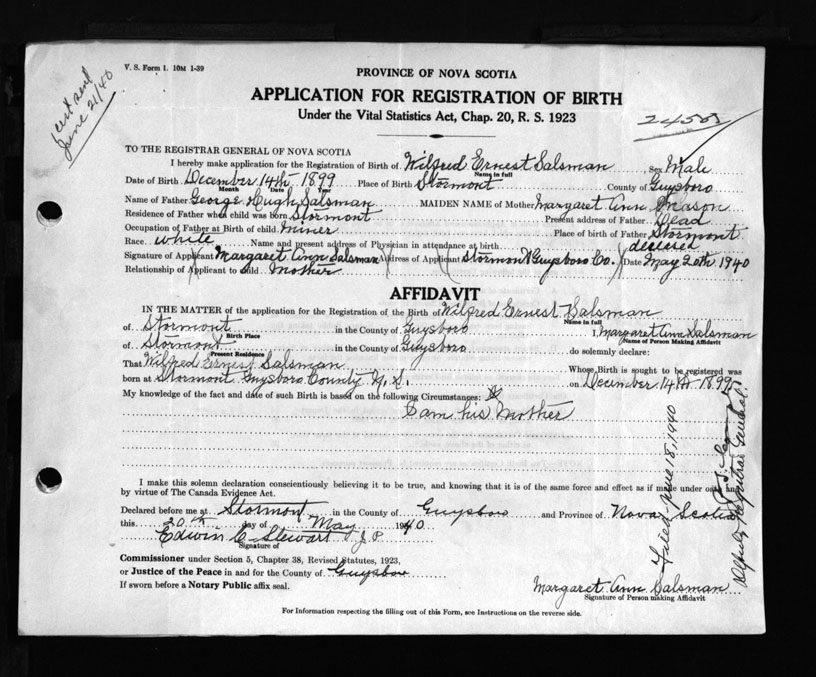 V. S. Form 1. 10M 1-39
Cert sent
June 21/40
PROVINCE OF NOVA SCOTIA
APPLICATION FOR REGISTRATION OF BIRTH
Under the Vital Statistics Act, Chap. 20, R. S. 1923
TO THE REGISTRAR GENERAL OF NOVA SCOTIA
I hereby make application for the Registration of Birth of Wilfred Ernest Salsman, Sex Male
Name in full
Date of Birth December 14th 1899 Place of Birth Stormont County of Guysboro
Month Date Year
Name of Father George Hugh Salsman MAIDEN NAME of Mother Margaret Ann Mason
Residence of Father when child was born Stormont Present address of Father Dead
Occupation of Father at Birth of child miner Place of birth of Father Stormont
Race white Name and present address of Physician in attendance at birth deceased
Signature of Applicant Margaret Ann Salsman Address of Applicant Stormont Guysboro Co. Date May 20th 1940
Relationship of Applicant to child Mother
AFFIDAVIT
IN THE MATTER of the application for the Registration of the Birth of Wilfred Ernest Salsman
Name in full
of Stormont in the County of Guysboro I, Margaret Ann Salsman
Birth Place Name of Person Making Affidavit
of Stormont in the County of Guysboro do solemnly declare:
Present Residence
That Wilfred Ernest Salsman Whose Birth is sought to be registered was
born at Stormont Guysboro County N. S. on December 14th 1899
My knowledge of the fact and date of such Birth is based on the following Circumstances:
I am his Mother
I make this solemn declaration conscientiously believing it to be true, and knowing that it is of the same force and effect as if made under oath and
by virtue of The Canada Evidence Act.
Declared before me at Stormont in the County of Guysboro and Province of Nova Scotia
this 20th day of May 1940
Edwin C. Stewart J. P.
Signature of
Commissioner under Section 5, Chapter 38, Revised Statutes, 1923,
or Justice of the Peace in and for the County of Guysboro
If sworn before a Notary Public affix seal.
Margaret Ann Salsman
Signature of Person making Affidavit
Filed June 18, 1940
Deputy Registrar General
For Information respecting the filling out of this Form, see Instructions on the reverse side.